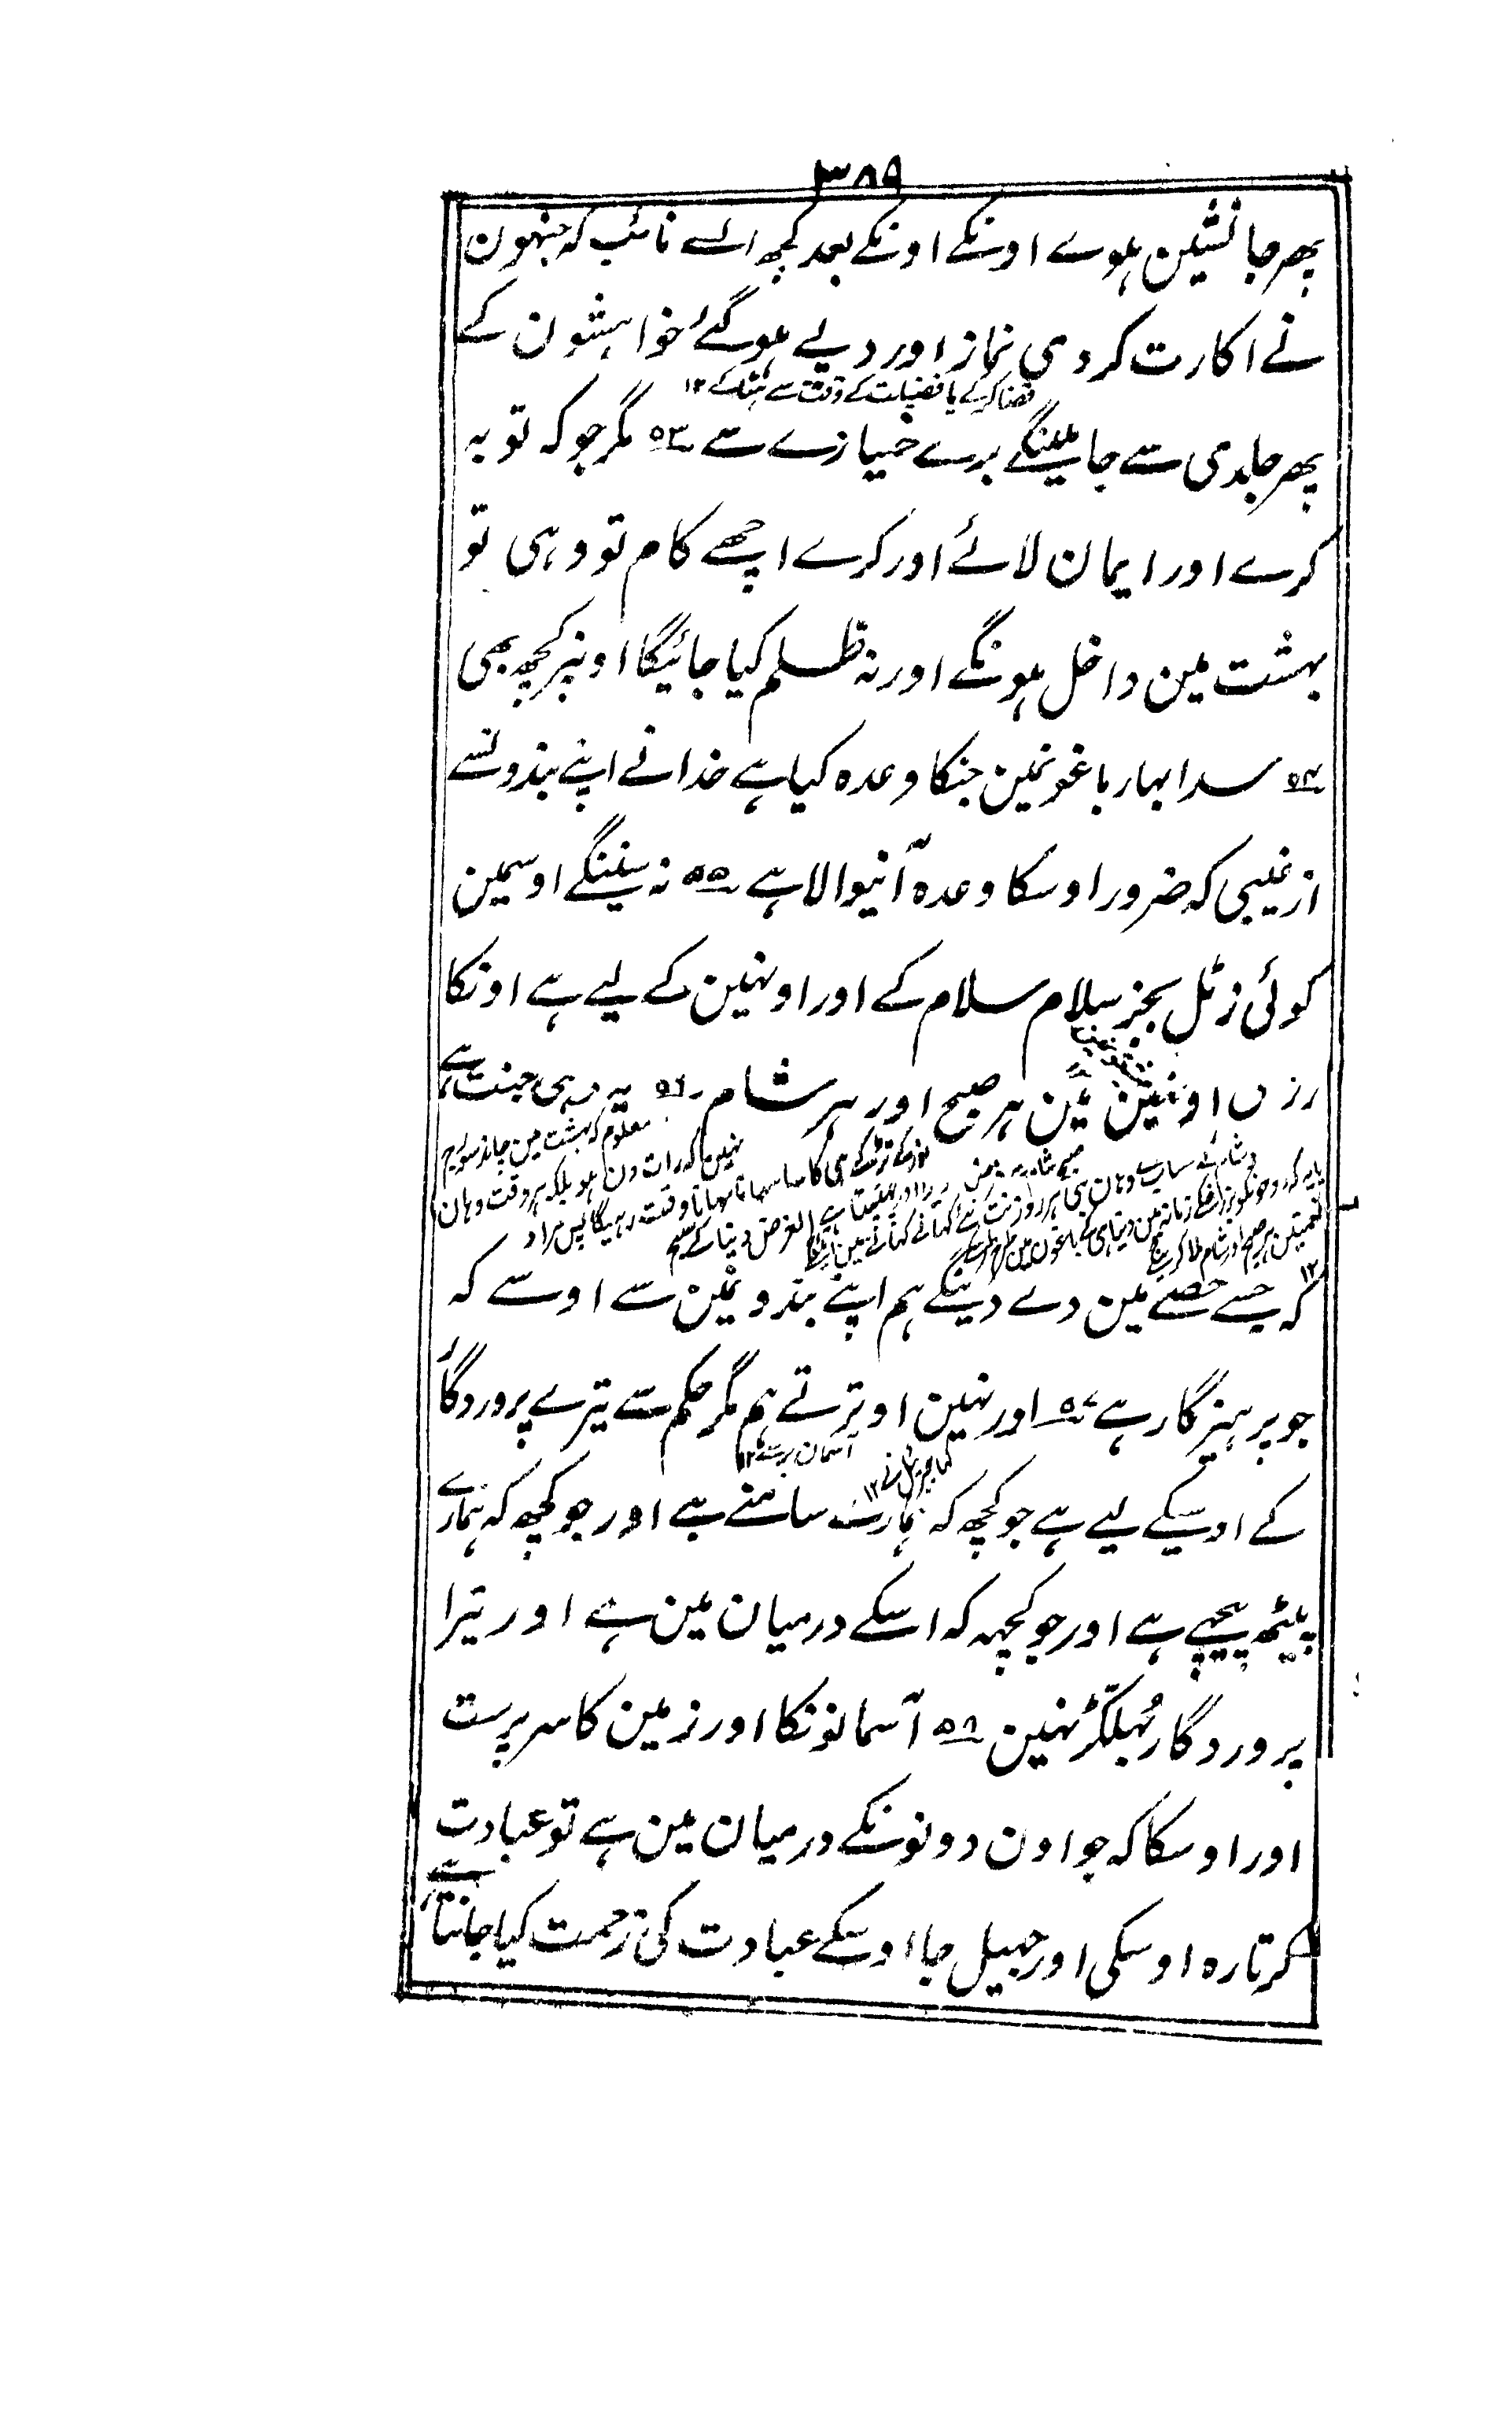 ۳۸۹
پھر جانشین ہوے اونکے اونکے بعد کچھ ایسے نائب کہ جنہون
نے اکارت کردی نماز اور دپے ہوگئے خواہشون کے
قضا کرکے یا فضیلت کے وقت سے ہٹا کے ۱۲
پھر جلدی سے جا ملینگے برے خمیازے سے ۵۳ مگر جو کہ توبہ
کرے اور ایمان لائے اور کرے اچھے کام تو وہی تو
بہشت مین داخل ہونگے اور نہ ظلم کیا جائیگا اونپر کچھ بھی
۵۴ سدا بہار باغونمین جنکا وعدہ کیا ہے خدا نے اپنے بندونسے
از غیبی کہ ضرور اوسکا وعدہ آنیوالا ہے ۵۵ نہ سنینگے اوسمین
کوئی زٹل بجز سلام سلام کے اور اونہین کے لیے ہے اونکا
رزق اونمین ہر صبح اور ہر شام ۵۶ یہ وہی جنت ہے
معلوم کہ بہشت مین چاند سورج
نہین کہ رات دن ہو بلکہ ہر وقت وہان
نور کے تڑکے ہی کا سا سہانا سہانا وقت رہیگا پس مراد
الغرض دنیا کے صبح
نعمتین ہر صبح اور شام ملا کرینگی
کہ جسے حصے مین دے دینگے ہم اپنے بندونمین سے اوسے کہ
جو پرہیزگار ہے ۵۷ اور نہین اوترتے ہم مگر حکم سے تیرے پروردگار
کہا جبرئیل نے ۱۲
آسمان پر سے ۱۲
کے اوسیکے لیے ہے جو کچھ کہ ہمارے سامنے ہے اور جو کچھ کہ ہمارے
پیٹھ پیچھے ہے اور جو کچھہ کہ اسکے درمیان مین ہے اور تیرا
پروردگار بُھلکّڑ نہین ۵۸ آسمانونکا اور زمین کا سرپرست
اور اوسکا کہ جو اون دونونکے درمیان مین ہے تو عبادت
کرتا رہ اوسکی اور جھیل جا اوسکے عبادت کی زحمت کیا جانتا ہے